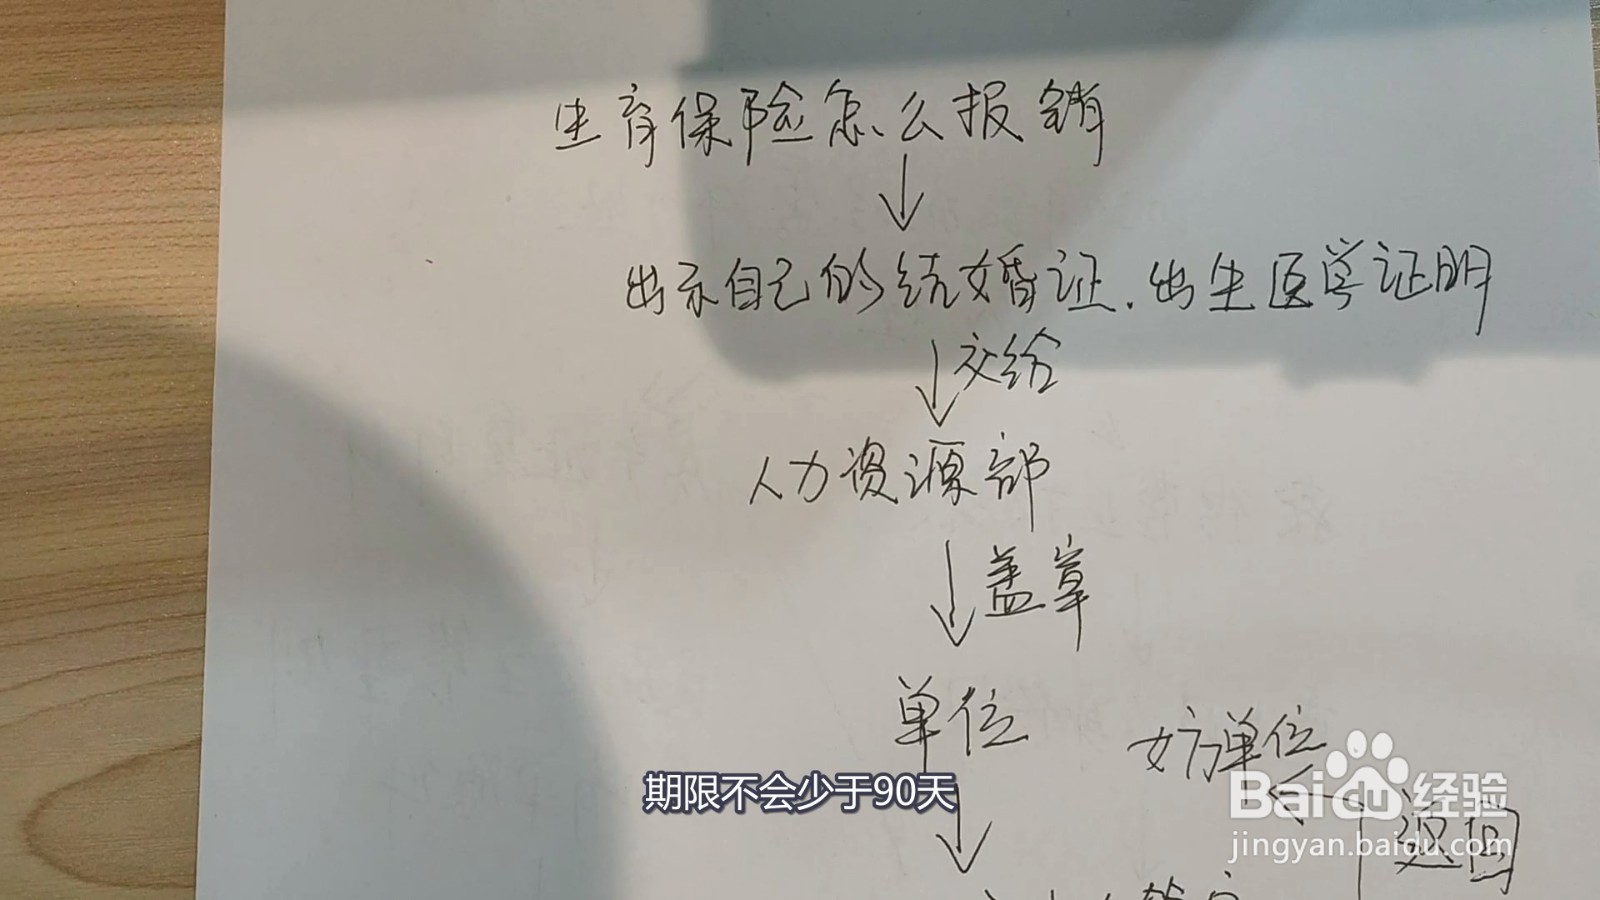 生育保险怎么报销
出示自己的结婚证.出生医学证明
交给
人力资源部
盖章
单位
女方单位
期限不会少于90天
Baidu经验
返回
jingyan.baidu.com